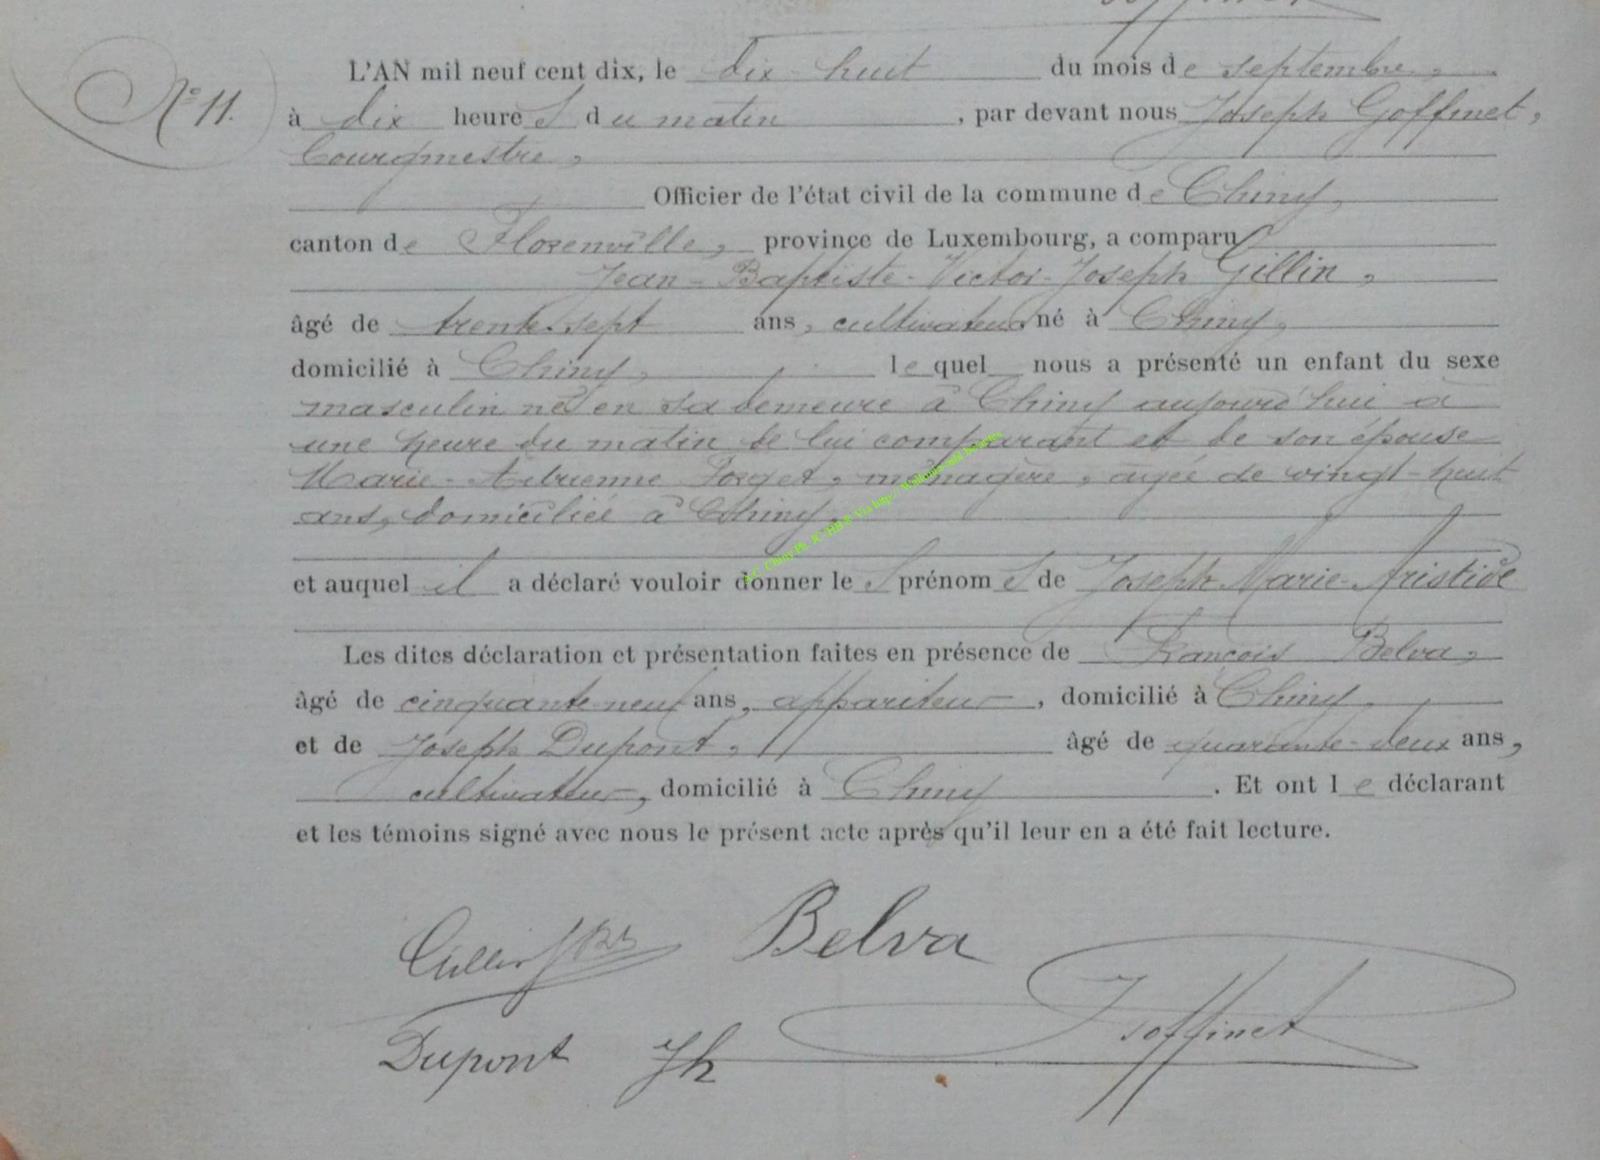 N° 11.
L'AN mil neuf cent dix, le dix-huit du mois de septembre,
à dix heures du matin, par devant nous Joseph Goffinet,
bourgmestre,
Officier de l'état civil de la commune de Chiny,
canton de Florenville, province de Luxembourg, a comparu
Jean-Baptiste-Victor-Joseph Gillin,
âgé de trente-sept ans, cultivateur, né à Chiny,
domicilié à Chiny, lequel nous a présenté un enfant du sexe
masculin né en sa demeure à Chiny aujourd'hui à
une heure du matin de lui comparant et de son épouse
Marie-Adrienne Forget, ménagère, agée de vingt-huit
ans, domiciliée à Chiny,
et auquel il a déclaré vouloir donner les prénoms de Joseph-Marie-Aristide
Les dites déclaration et présentation faites en présence de François Belva,
âgé de cinquante-neuf ans, appariteur, domicilié à Chiny,
et de Joseph Dupont, âgé de quarante-deux ans,
cultivateur, domicilié à Chiny. Et ont le déclarant
et les témoins signé avec nous le présent acte après qu'il leur en a été fait lecture.
Gillin Belva
Goffinet
Dupont Jh